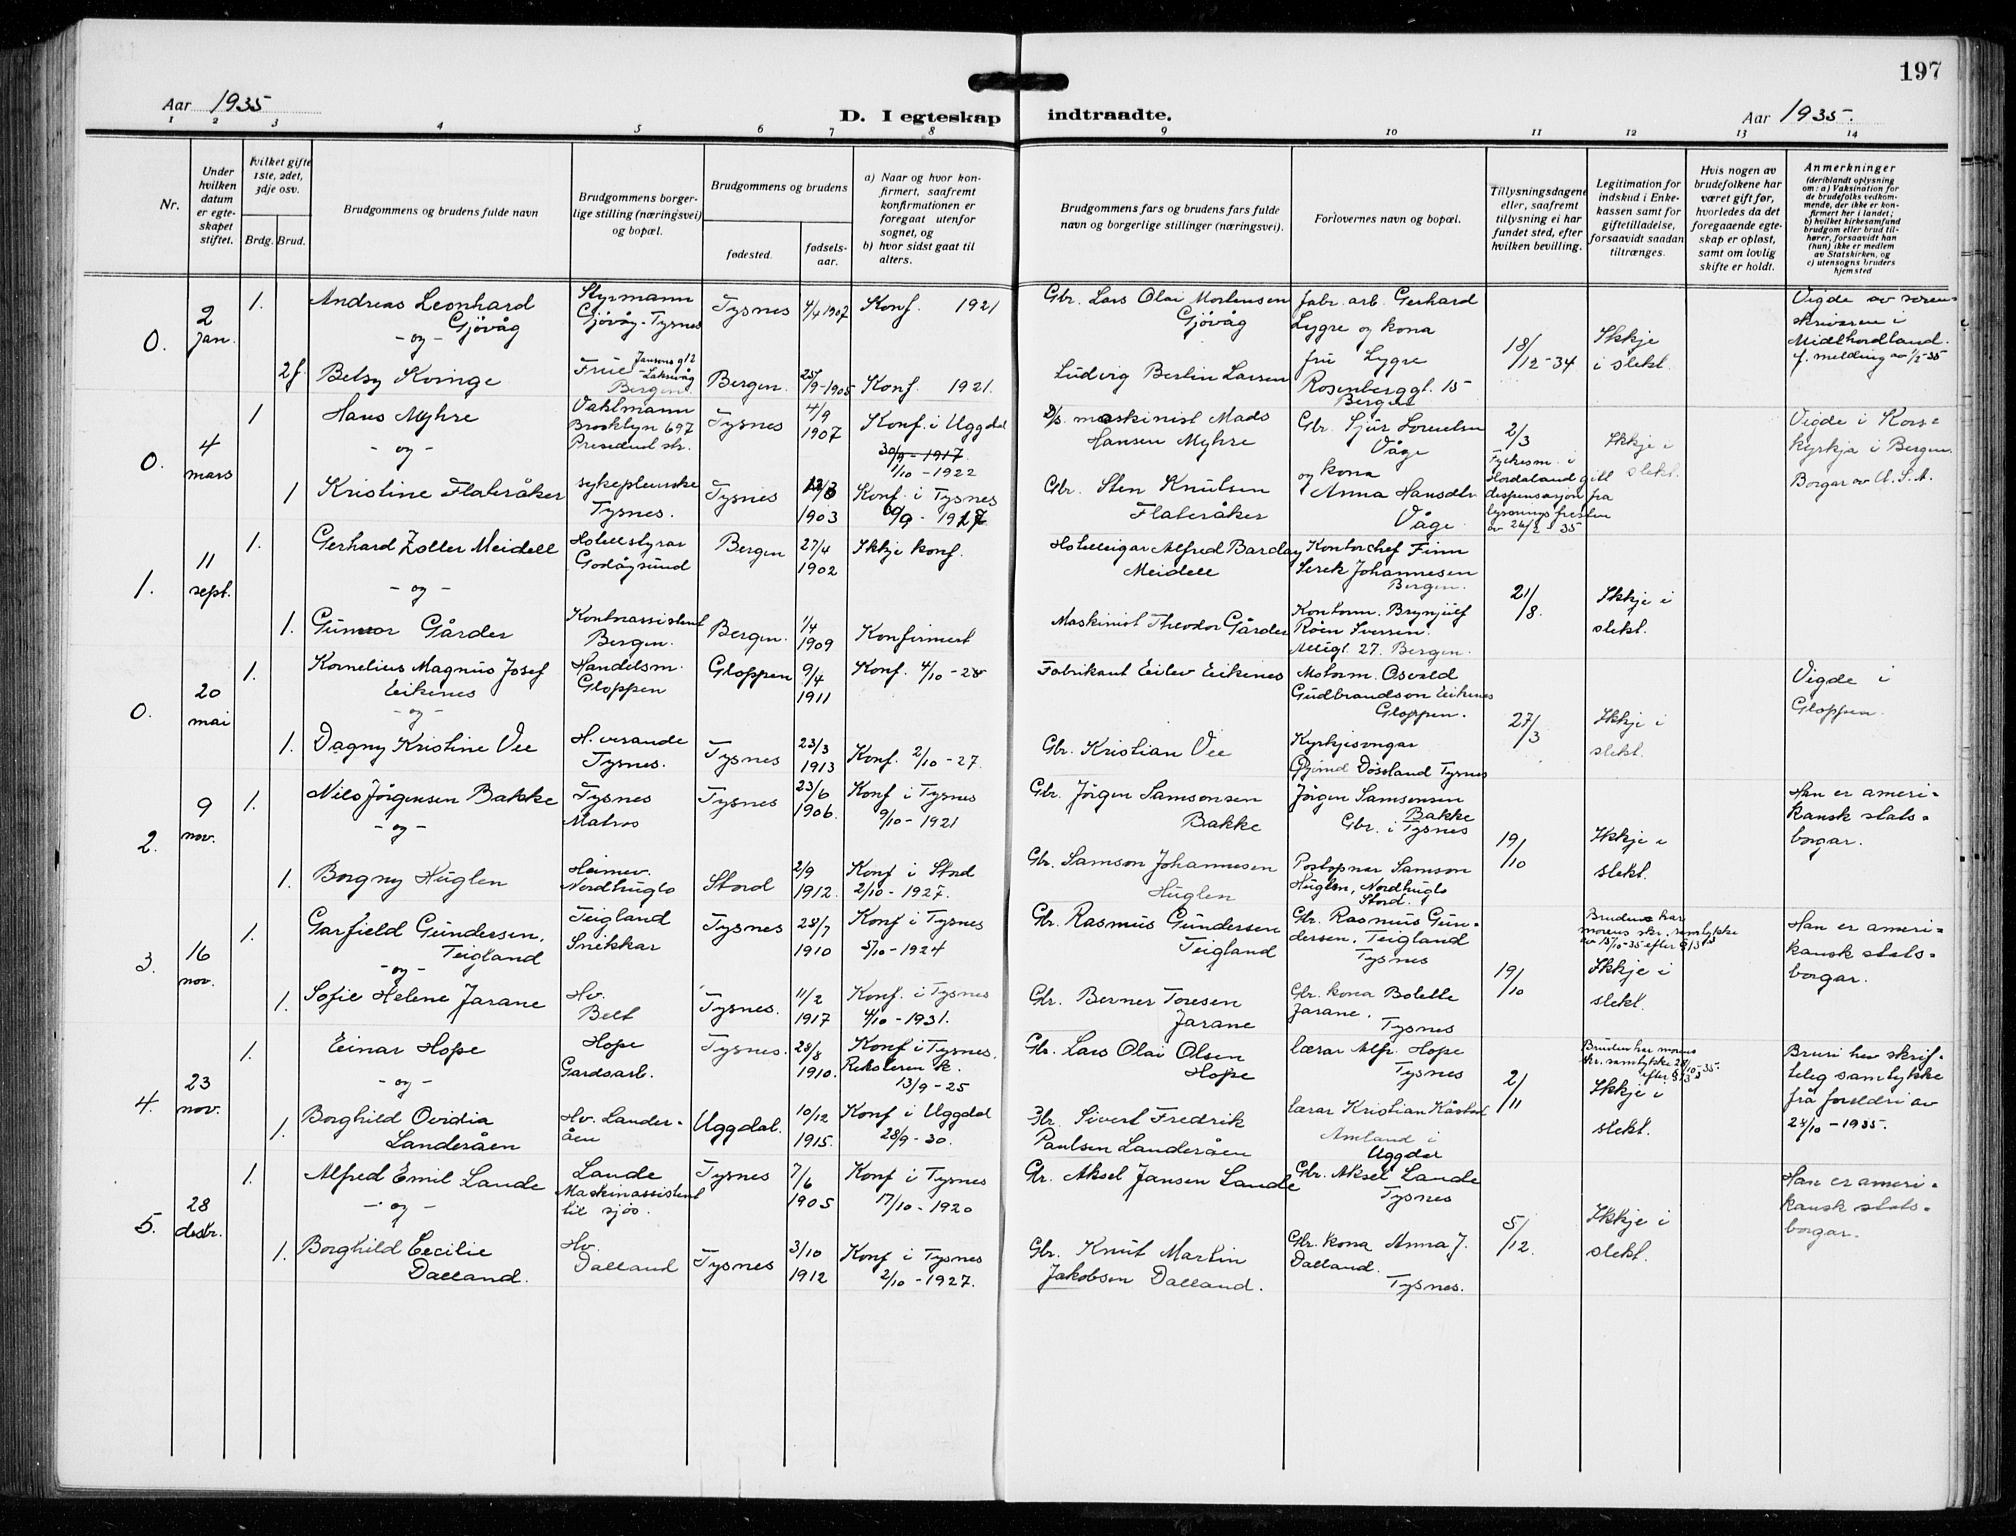 197
Aar 1935
D. I egteskap indtraadte.
Aar 1935.
1 2 3 4 5 6 7 8 9 10 11 12 13 14
Nr.
Under hvilken datum er egteskapet stiftet.
Hvilket gifte 1ste, 2det, 3dje osv.
Brdg. Brud.
Brudgommens og brudens fulde navn
Brudgommens borgerlige stilling (næringsvei) og bopæl.
Brudgommens og brudens
fødested.
fødselsaar.
a) Naar og hvor konfirmert, saafremt konfirmationen er foregaat utenfor sognet, og
b) hvor sidst gaat til alters.
Brudgommens fars og brudens fars fulde navn og borgerlige stillinger (næringsvei).
Forlovernes navn og bopæl.
Tillysningsdagene eller, saafremt tillysning ei har fundet sted, efter hvilken bevilling.
Legitimation for indskud i Enkekassen samt for giftetilladelse, forsaavidt saadan tiltrænges.
Hvis nogen av brudefolkene har været gift før, hvorledes da det foregaaende egteskap er opløst, samt om lovlig skifte er holdt.
Anmerkninger
(deriblandt oplysning om: a) Vaksination for de brudefolks vedkommende, der ikke er konfirmert her i landet; b) hvilket kirkesamfund brudgom eller brud tilhører, forsaavidt han (hun) ikke er medlem av Statskirken, og c) utensogns bruders hjemsted
0. 2 jan.
1. Andreas Leonhard Gjövåg
Styrmann Gjövåg - Tysnes
Tysnes 4/4 1907 Konf. 1921
Gbr. Lars Olai Mortensen Gjövåg
fabr. arb. Gerhard Lygre og kona fru Lygre
Rosenberggt. 15 Bergen
18/12-34
Ikkje i slekt.
Vigde av sorenskrivaren i Midthordland. f. melding av 1/2-35
- og -
2g Betsy Kvinge
Frue Jansons g 12 - Laksevåg Bergen
Bergen. 25/9-1905 Konf. 1921.
Ludvig Bertin Larsen
0. 4 mars
1 Hans Myhre
Vaktmann Brooklyn 697 President str.
Tysnes 4/9 1907
Konf. i Uggdal 30/9-1917 1/10-1922
D/s. maskinist Mads Hansen Myhre
Gbr. Sjur Lorentsen Våge og kona Anna Hansdtr Våge
2/3 Fylkesm. i Hordaland gitt dispensasjon fra lysningsfristen av 26/2-35
Ikkje i slekt.
Vigde i Korskyrkja i Bergen. Borgar av U.S.A.
- og -
1 Kristine Flateråker
sykepleierske Tysnes.
Tysnes 1903
Konf. i Tysnes
Gbr. Sten Knutsen Flateråker
1. 11 sept.
1. Gerhard Zoller Meidell
Hotellstyrar Godöysund
Bergen 27/4 1902 Ikkje konf.
Hotelleigar Alfred Barclay Meidell
Kontorchef Finn Serck Johannesen Bergen.
21/8.
Ikkje i slekt.
- og -
1. Gunvor Gårder
Kontorassistent Bergen.
Bergen. 1/4 1909 Konfirmert
Maskinist Theodor Gårder
Kontorm. Brynjulf Röen Iversen. Allégt. 27. Bergen.
0. 20 mai
1. Kornelius Magnus Josef Eikenes
Handelsm. Gloppen
Gloppen 9/4 1911 Konf. 4/10-28
Fabrikant Eilev Eikenes
Motorm. Osvald Gudbrandson Eikenes Gloppen.
27/3
Ikkje i slekt.
Vigde i Gloppen.
- og -
1. Dagny Kristine Vee
H. verande Tysnes.
Tysnes 23/3 1913 Konf. 2/10-27.
Gbr. Kristian Vee
Kyrkjesongar Dössland Tysnes
2. 9 nov.
1. Nils Jörgensen Bakke
Tysnes Matros
Tysnes 23/6 1906.
Konf i Tysnes 9/10-1921
Gbr. Jörgen Samsonsen Bakke
Jörgen Samsonsen Bakke Gbr. i Tysnes
19/10
Ikkje i slekt.
Han er amerikansk statsborgar.
- og -
1. Borgny Huglen
Heimev. Nordhuglo
Stord 2/9 1912.
Konf i Stord 2/10-1927.
Gbr. Samson Johannesen Huglen
Postopnar Samson Huglen, Nordhuglo Stord.
3. 16 nov.
1. Garfield Gundersen Teigland
Teigland Snikkar
Tysnes 28/7 1910
Konf i Tysnes 5/10-1924
Gbr. Rasmus Gundersen Teigland
Gbr. Rasmus Gundersen, Teigland Tysnes
19/10
Brudene har morens skr. samtykke av 15/10-35 efter § 13
Ikkje i slekt.
Han er amerikansk statsborgar.
- og -
1. Sofie Helene Jarane
Hv. Belt
Tysnes. 11/2 1917
Konf. i Tysnes 4/10-1931.
Gbr. Berner Toresen Jarane
Gbr. kona Bolette Jarane. Tysnes
4. 23 nov.
1. Einar Hope
Hope Gardsarb.
Tysnes. 28/8 1910.
Konf i Tysnes. Reksteren k. 13/9-25
Gbr. Lars Olai Olsen Hope
lærar Alfr. Hope Tysnes
2/11
Bruden har morens skr. samtykke 28/10-35. efter § 13
Ikkje i slekt.
Bruri hev skrifteleg samtykke frå foreldri av 28/10-1935.
- og -
1. Borghild Ovidia Landeråen
Hv. Landeråen
Uggdal. 10/12 1915.
Konf i Uggdal 28/9-30.
Gbr. Sivert Fredrik Paulsen Landeråen
lærar Kristian Kåstad Amland i Uggdal
5. 28 desbr.
1. Alfred Emil Lande
Lande Maskinassistent til sjös.
Tysnes 7/6 1905
Konf i Tysnes 17/10-1920
Gbr. Aksel Jansen Lande
Gbr. Aksel Lande Tysnes
5/12.
Ikkje i slekt.
Han er amerikansk statsborgar.
- og -
1. Borghild Cecilie Dalland.
Hv. Dalland
Tysnes 3/10 1912
Konf i Tysnes 2/10-1927.
Gbr. Knut Martin Jakobsen Dalland.
Gbr. kona Anna J. Dalland. Tysnes.